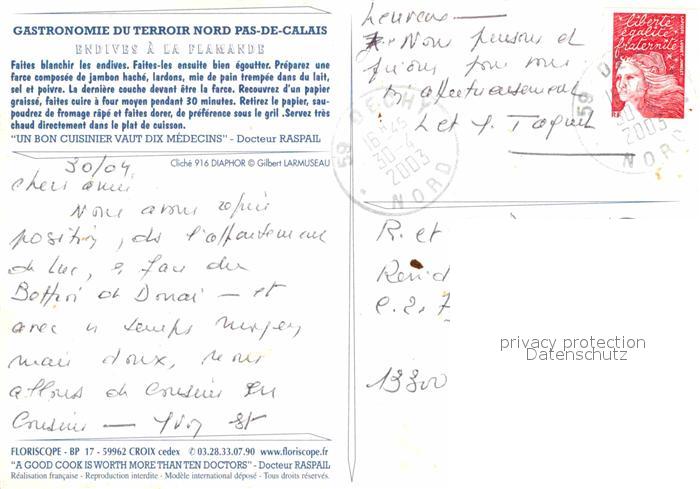 GASTRONOMIE DU TERROIR NORD PAS-DE-CALAIS
ENDIVES À LA FLAMANDE
Faites blanchir les endives. Faites-les ensuite bien égoutter. Préparez une
farce composée de jambon haché, lardons, mie de pain trempée dans du lait,
sel et poivre. La dernière couche devant être la farce. Recouvrez d'un papier
graissé, faites cuire à four moyen pendant 30 minutes. Retirez le papier, sau-
poudrez de fromage râpé et faites dorer, de préférence sous le gril .Servez très
chaud directement dans le plat de cuisson.
"UN BON CUISINIER VAUT DIX MÉDECINS" - Docteur RASPAIL
Cliché 916 DIAPHOR © Gilbert LARMUSEAU
30/04
chers amis
Nous avons
position, de l'appartement
de Luc, face du
de Douai — et
avec un temps moyen
mais doux, nous
allons de Cousins en
Cousins —
FLORISCOPE - BP 17 - 59962 CROIX cedex ✆ 03.28.33.07.90 www.floriscope.fr
"A GOOD COOK IS WORTH MORE THAN TEN DOCTORS" - Docteur RASPAIL
Réalisation française - Reproduction interdite - Modèle international déposé - Tous droits réservés.
heureux —
Nous pensons et
prions pour vous
affectueusement
L et Y.
59 DECHY
16H45
30-4
2003
NORD
liberté
égalité
fraternité
RF
59 D
30
2003
NORD
R. et
13300
privacy protection
Datenschutz